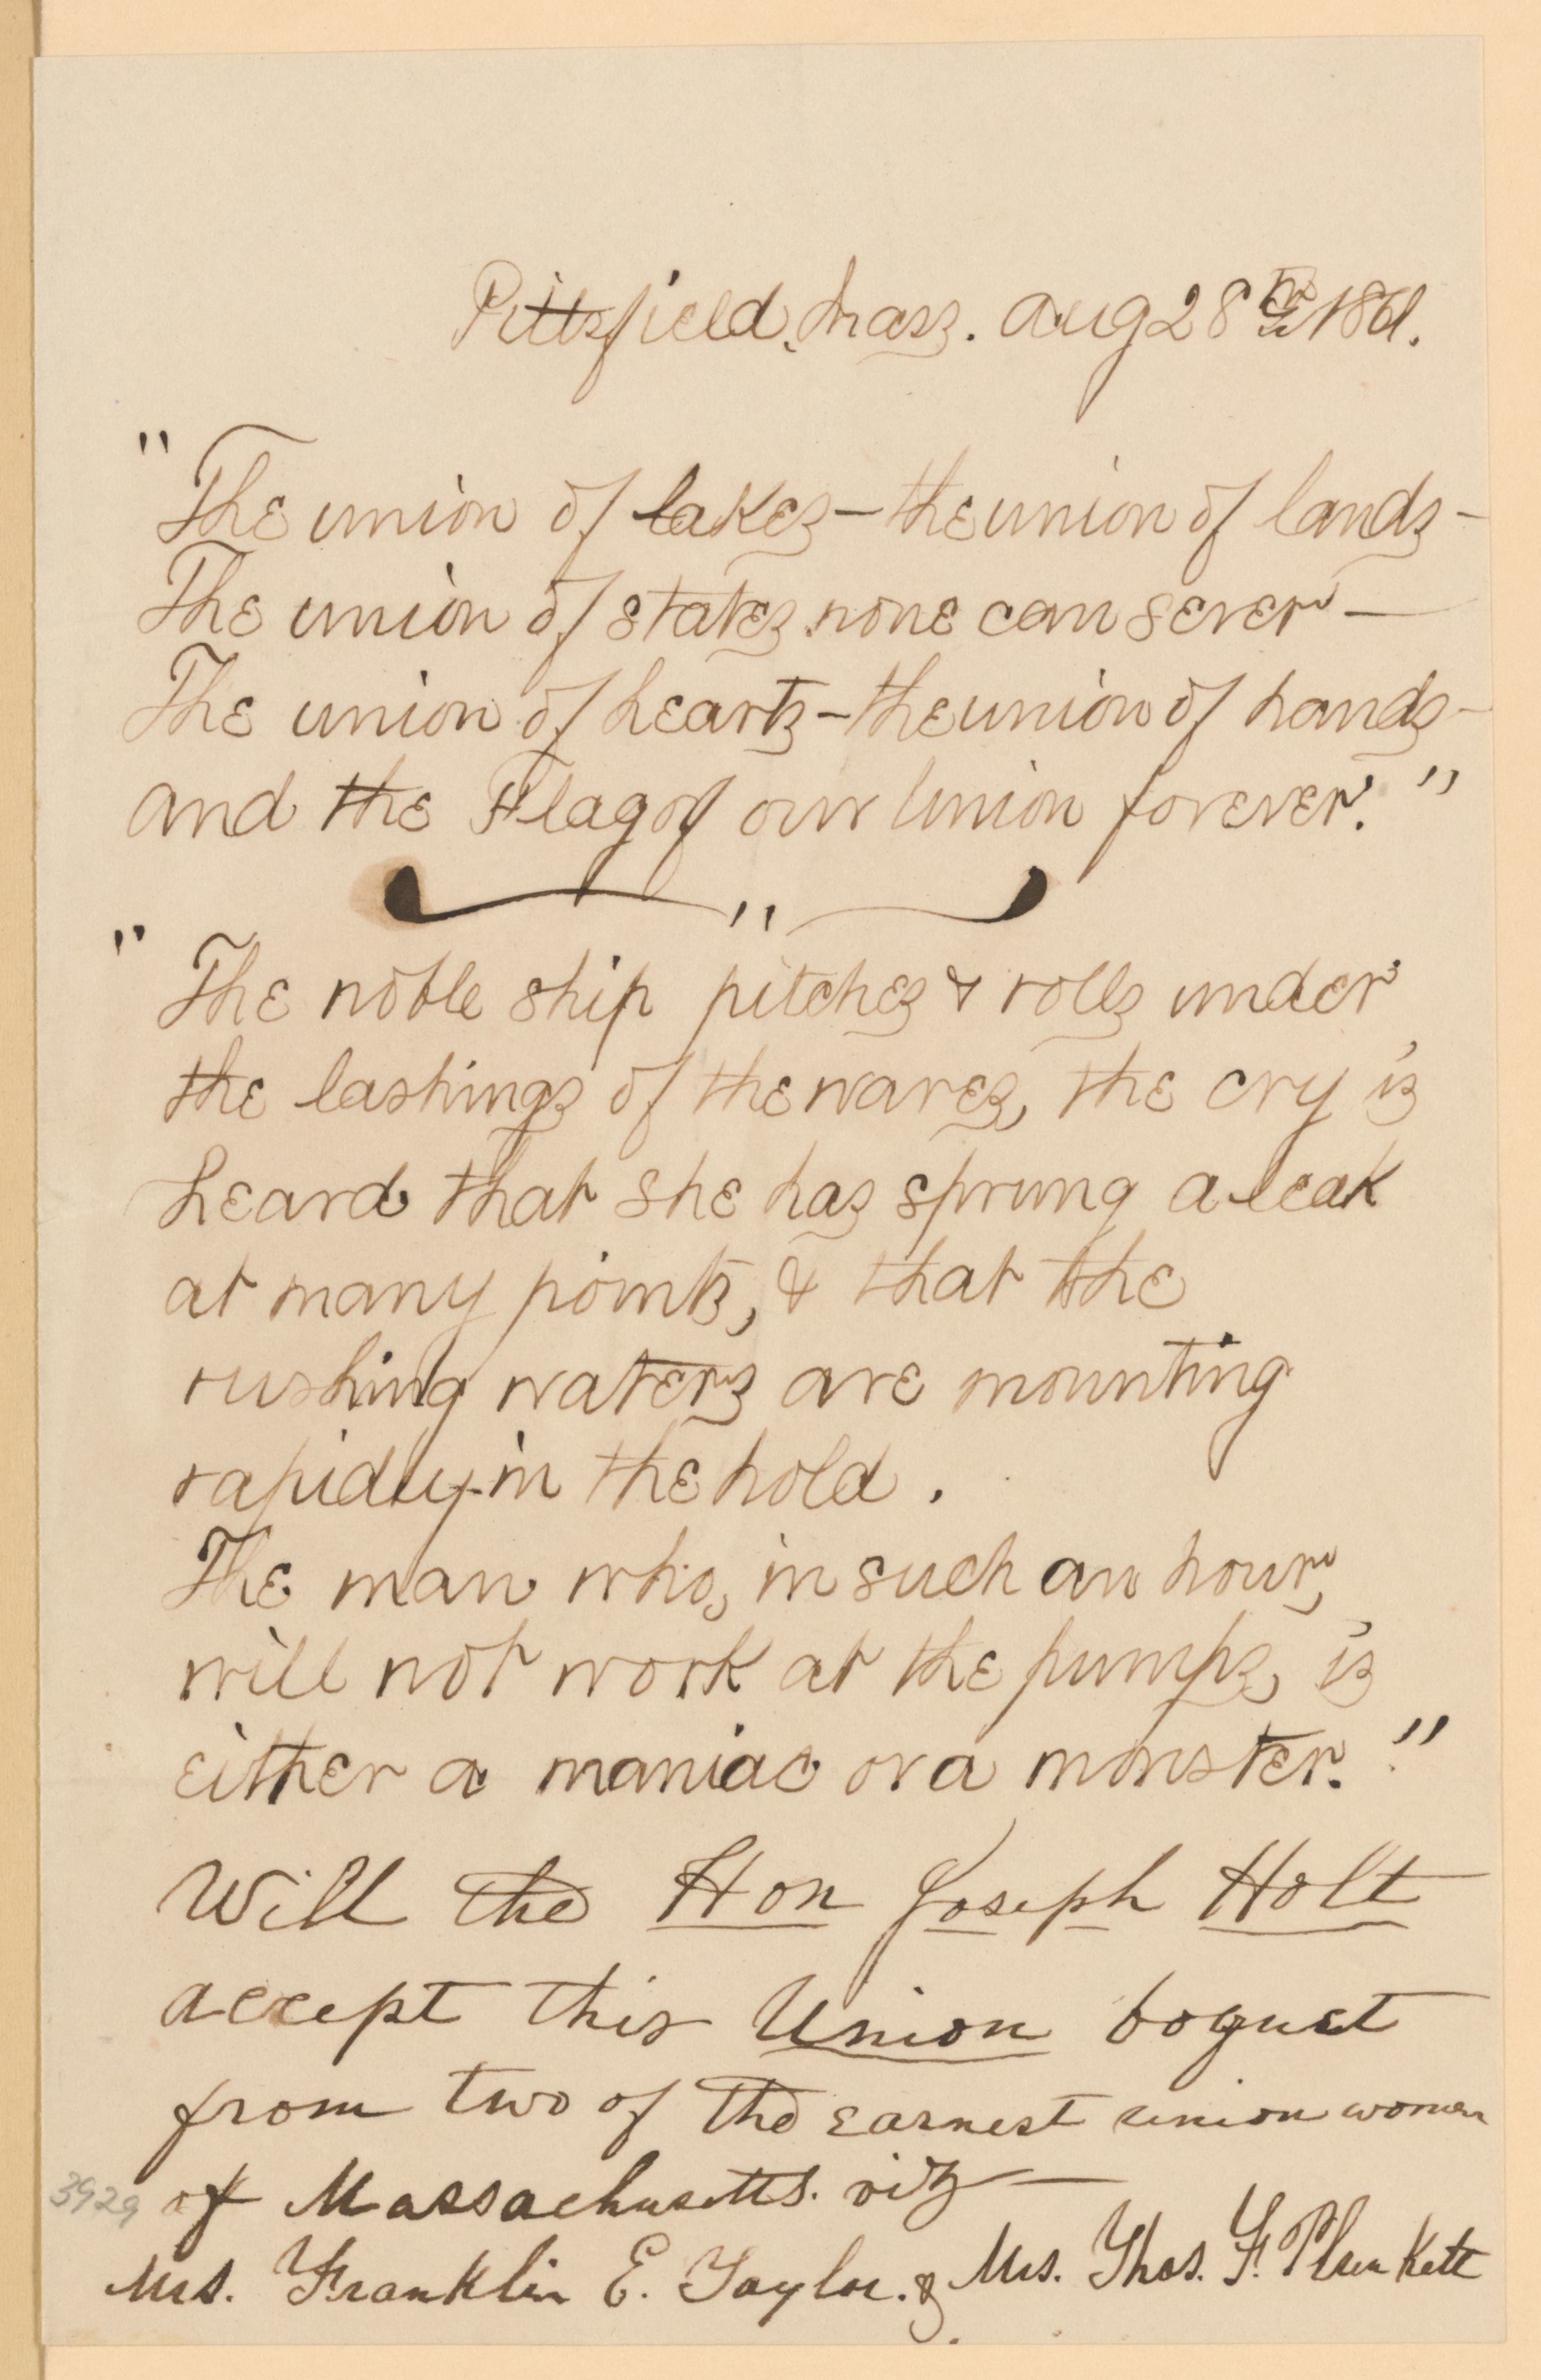 Pittsfield, Mass. Aug 28th 1861.
"The union of lakes – the union of lands –
The union of states none can sever –
The union of hearts – the union of hands –
And the Flag of our Union forever."
"
"The noble ship pitches & rolls under
the lashings of the waves, the cry is
heard that she has sprung a leak
at many points, & that the
rushing waters are mounting
rapidly in the hold.
The man who, in such an hour,
will not work at the pumps, is
either a maniac or a monster."
Will the Hon Joseph Holt
accept this Union boquet
from two of the earnest union women
of Massachusetts. viz –
3929
Mrs. Franklin E. Taylor. & Mrs. Thos. F. Plunkett